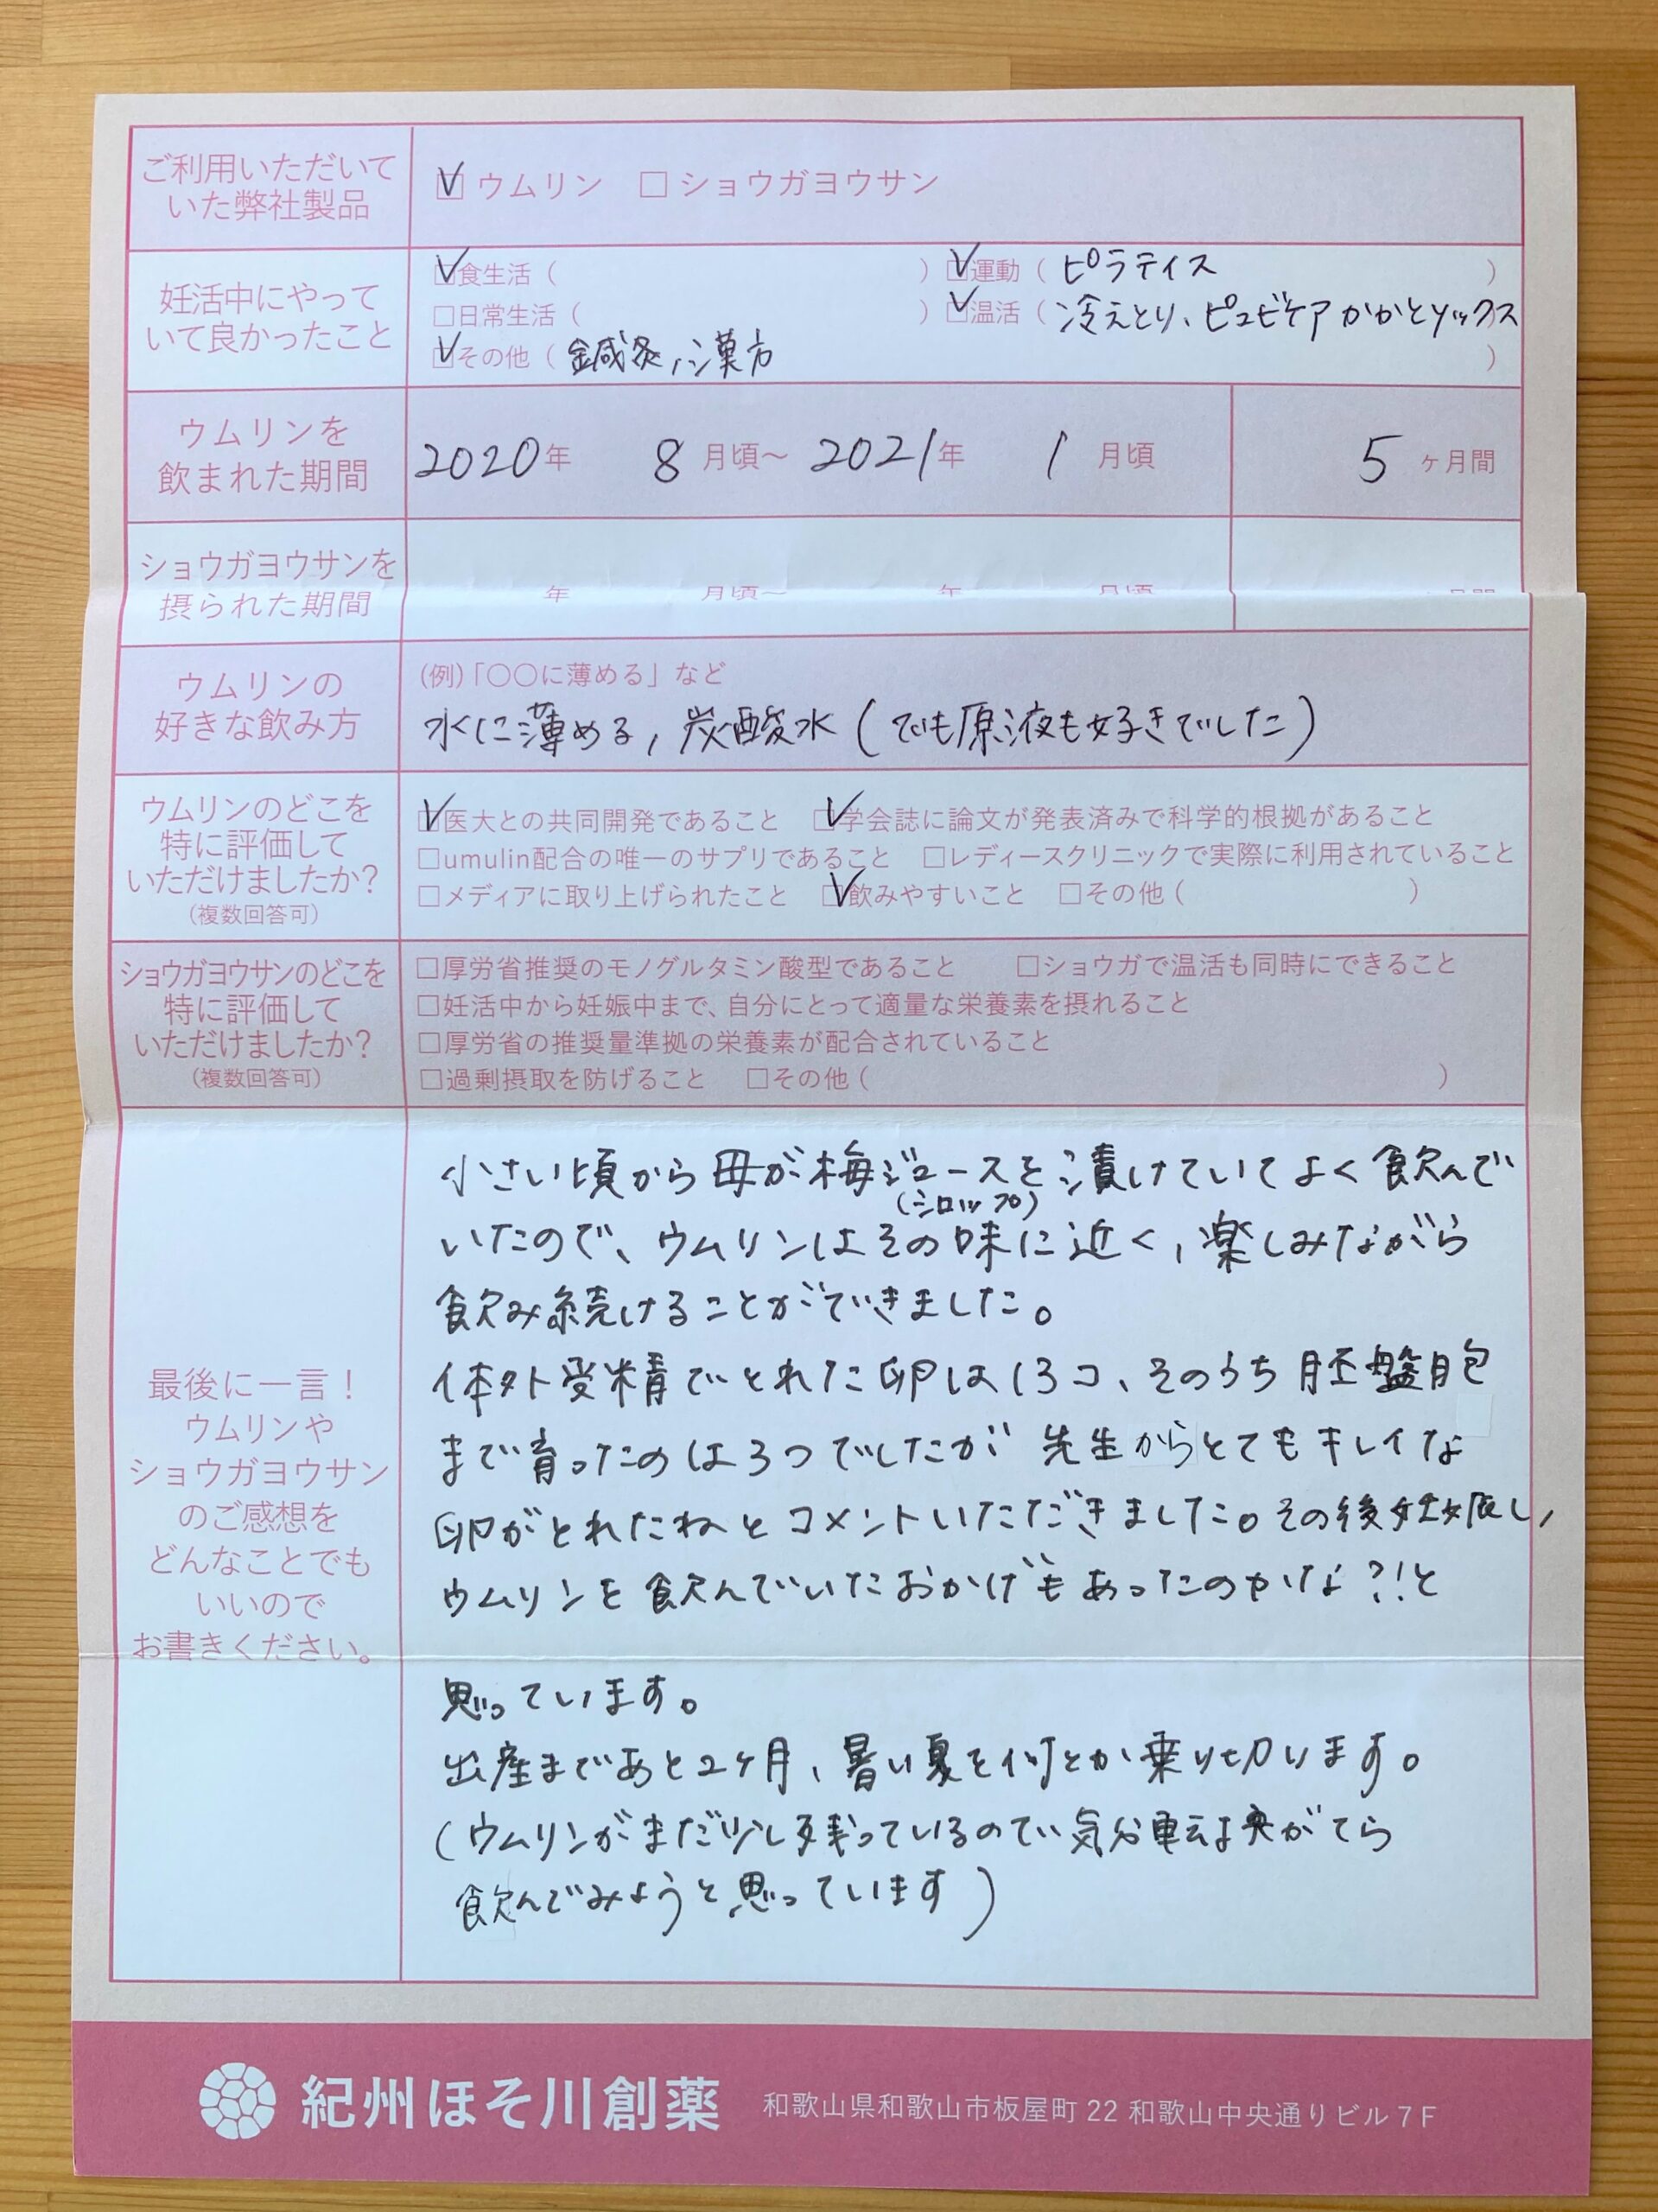 ご利用いただいて
いた弊社製品
☑ウムリン □ショウガヨウサン
妊活中にやって
いて良かったこと
☑食生活( ) ☑運動(ピラティス )
□日常生活( ) ☑温活(冷えとり、ピュビケアかかとソックス
☑その他(鍼灸,漢方 )
ウムリンを
飲まれた期間
2020年 8月頃〜2021年 1月頃 5ヶ月間
ショウガヨウサンを
摂られた期間
年 月頃〜 年 月頃
ウムリンの
好きな飲み方
(例)「〇〇に薄める」など
水に薄める,炭酸水(でも原液も好きでした)
ウムリンのどこを
特に評価して
いただけましたか?
(複数回答可)
☑医大との共同開発であること ☑学会誌に論文が発表済みで科学的根拠があること
□umulin配合の唯一のサプリであること □レディースクリニックで実際に利用されていること
□メディアに取り上げられたこと ☑飲みやすいこと □その他( )
ショウガヨウサンのどこを
特に評価して
いただけましたか?
(複数回答可)
□厚労省推奨のモノグルタミン酸型であること □ショウガで温活も同時にできること
□妊活中から妊娠中まで、自分にとって適量な栄養素を摂れること
□厚労省の推奨量準拠の栄養素が配合されていること
□過剰摂取を防げること □その他( )
最後に一言!
ウムリンや
ショウガヨウサン
のご感想を
どんなことでも
いいので
お書きください。
小さい頃から母が梅ジュースを漬けていてよく飲んで
(シロップ)
いたので、ウムリンはその味に近く,楽しみながら
飲み続けることができました。
体外受精でとれた卵は13コ、そのうち胚盤胞
まで育ったのは3つでしたが先生からとてもキレイな
卵がとれたねとコメントいただきました。その後妊娠し,
ウムリンを飲んでいたおかげもあったのかな?!と
思っています。
出産まであと2ヶ月、暑い夏を何とか乗り切ります。
(ウムリンがまだ少し残っているので気分転換がてら
飲んでみようと思っています)
紀州ほそ川創薬 和歌山県和歌山市板屋町22和歌山中央通りビル7F